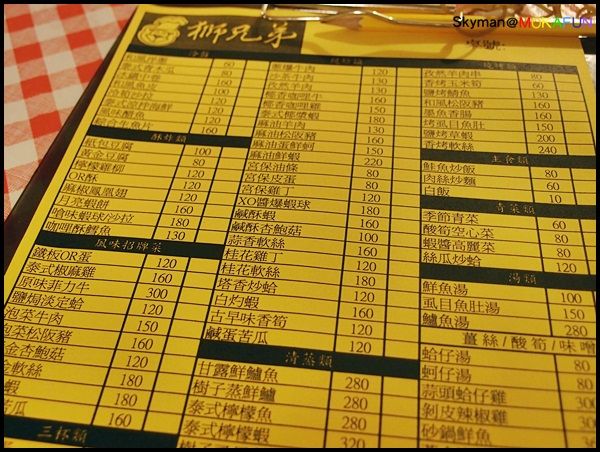 Skyman@MUKAFUN
獅兄弟
桌號:
冷盤
和風洋蔥 60
泰式青木瓜 80
味鯛中卷
和風魚皮
涼拌炒拉 150
泰式涼拌海鮮 160
風味醋魚 120
綜合生魚片 160
酥炸類
紙包豆腐 100
黃金豆腐 80
檸檬雞柳 120
OR酥 120
麻椒鳳凰翅 120
月亮蝦餅 160
嗆味蝦球/沙拉 180
咖哩酥鱈魚 130
風味招牌菜
鐵板OR蛋 120
泰式椒麻雞 160
原味菲力牛 300
鹽焗淡定蛤 120
泡菜牛肉 150
泡菜松阪豬 160
金杏鮑菇 120
軟絲 180
蝦 180
苦瓜 160
三杯類
熱炒類
蔥爆牛肉 120
沙茶牛肉 130
椰香咖哩牛
椰香咖哩雞
泰式椰漿蝦
麻油羊肉
麻油松阪豬
麻油蛋鮮蚵 150
麻油鮮蝦 220
宮保油條 120
宮保皮蛋 120
宮保雞丁 120
XO醬爆蝦球 180
鹹酥蝦 180
鹹酥杏鮑菇 150
蒜香軟絲 160
桂花雞丁 120
桂花軟絲 180
塔香炒蛤 120
白灼蝦 160
古早味香筍 150
鹹蛋苦瓜 120
清蒸類
甘露鮮鱸魚 280
樹子蒸鮮鱸 280
泰式檸檬魚 280
泰式檸檬蝦 320
燒烤類
孜然羊肉串 80
香烤玉米筍 60
鹽烤鯛魚 130
和風松阪豬 160
墨魚香腸 160
烤虱目魚肚 150
鹽烤草蝦 200
香烤軟絲 240
主食類
鮭魚炒飯 80
肉絲炒麵 60
白飯 10
青菜類
季節青菜 60
酸筍空心菜 80
蝦醬高麗菜 80
絲瓜炒蛤 120
湯類
鮮魚湯 100
虱目魚肚湯 150
鱸魚湯 280
薑絲/酸筍/味噌
蛤仔湯 80
蚵仔湯 80
蒜頭蛤仔雞
剝皮辣椒雞
砂鍋鮮魚